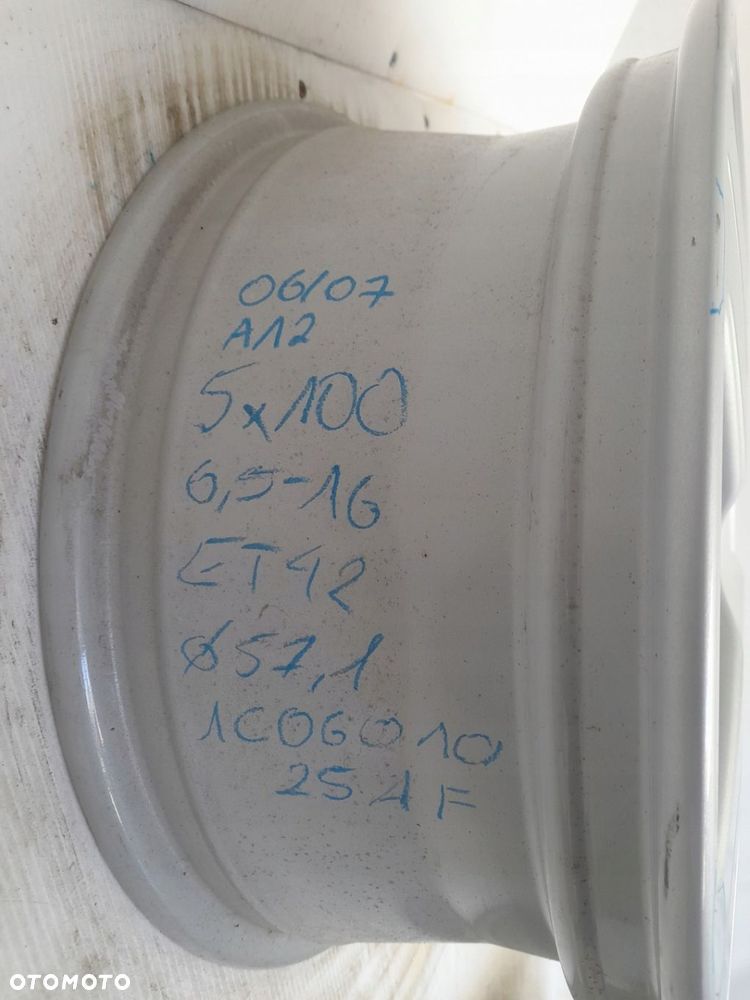 06/07
A12
5x100
6,5-16
ET42
Ø57,1
1C06010
25AF
OTOMOTO